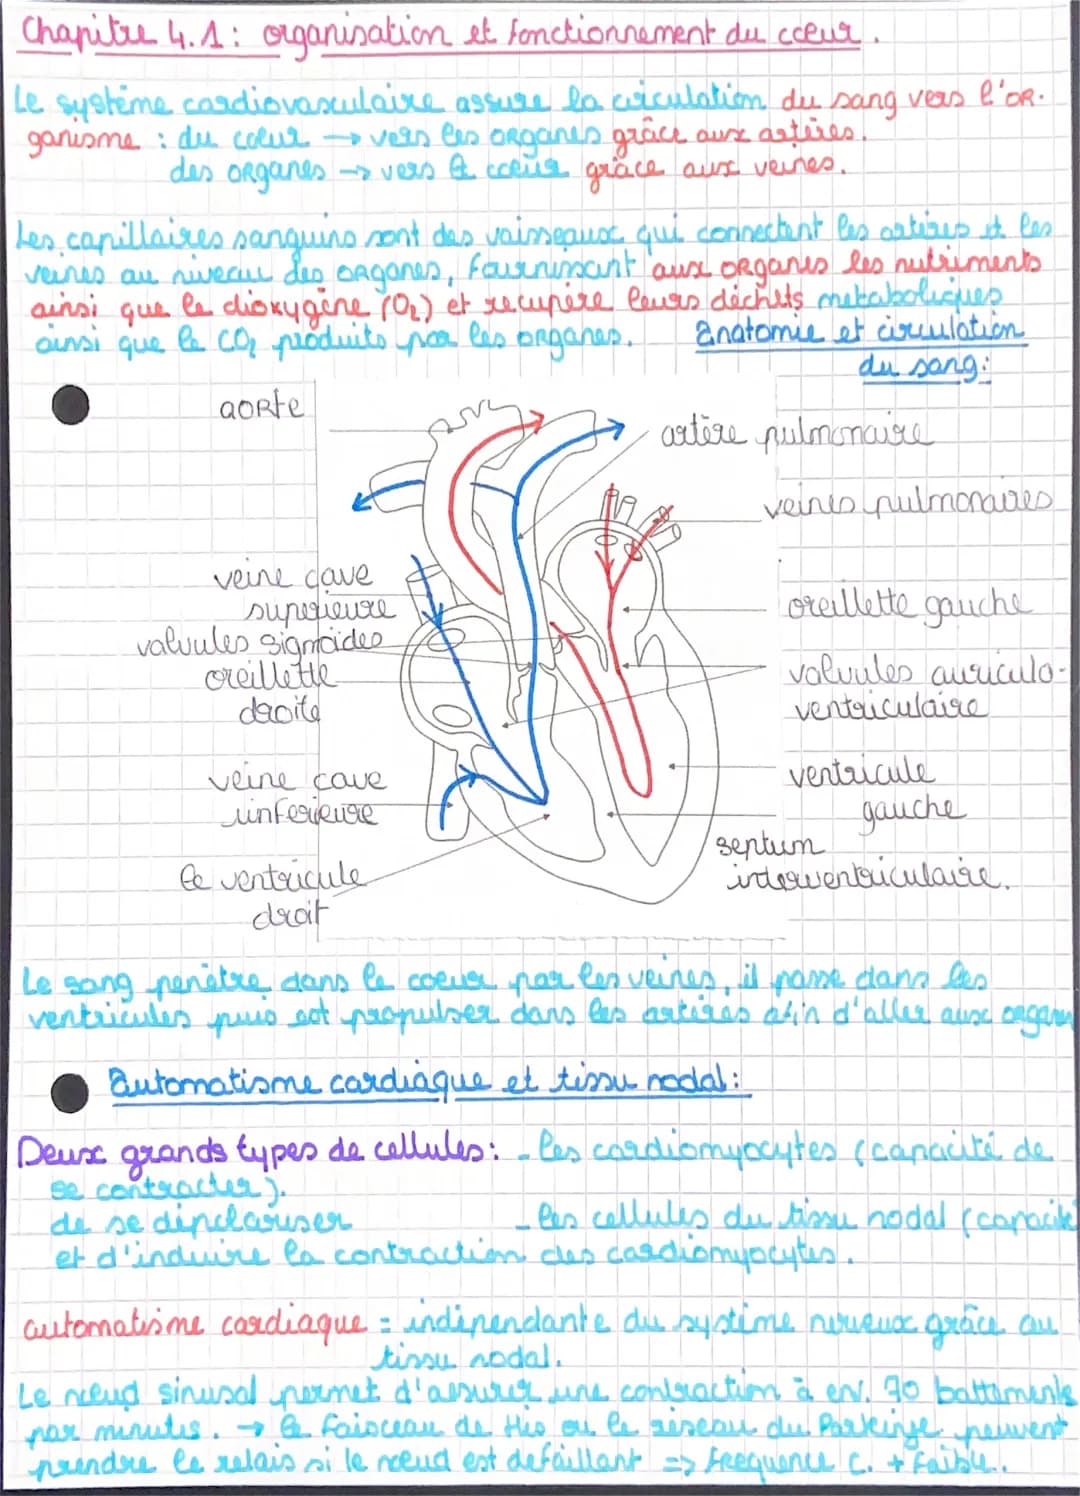 Chapitre 4.1 : organisation et fonctionnement du cœur.
Le système cardiovasculaire assure la circulation du sang vers l'or-
ganisme : du cœur → vers les organes grâce aux artères.
des organes → vers le cœur grâce aux veines.
Les capillaires sanguins sont des vaisseaux qui connectent les artères et les
veines au niveau des organes, fournissant aux organes les nutriments
ainsi que le dioxygène (O₂) et recupère leurs déchets métaboliques
ainsi que le CO₂ produits par les organes.
Anatomie et circulation
du sang:
aorte
artère pulmonaire
veines pulmonaires
veine cave
superieure
valvules sigmoïdes
oreillette
droite
oreillette gauche
valvules auriculo-
ventriculaire
veine cave
inferieure
ventricule
gauche
septum
interventriculaire.
le ventricule
droit
Le sang penètre dans le coeur par les veines, il passe dans les
ventricules puis est propulser dans les artères afin d'aller aux organes
Automatisme cardiaque et tissu nodal :
Deux grands types de cellules : - les cardiomyocytes (capacité de
se contracter).
- les cellules du tissu nodal (capacité
de se dépolariser
et d'induire la contraction des cardiomyocytes.
automatisme cardiaque = indépendante du système nerveux grâce au
tissu nodal.
Le nœud sinusal permet d'assurer une contraction à env. 70 battements
par minutes. → le faisceau de His ou le réseau du Parkinge peuvent
prendre le relais si le nœud est défaillant => frequence c. + faible.